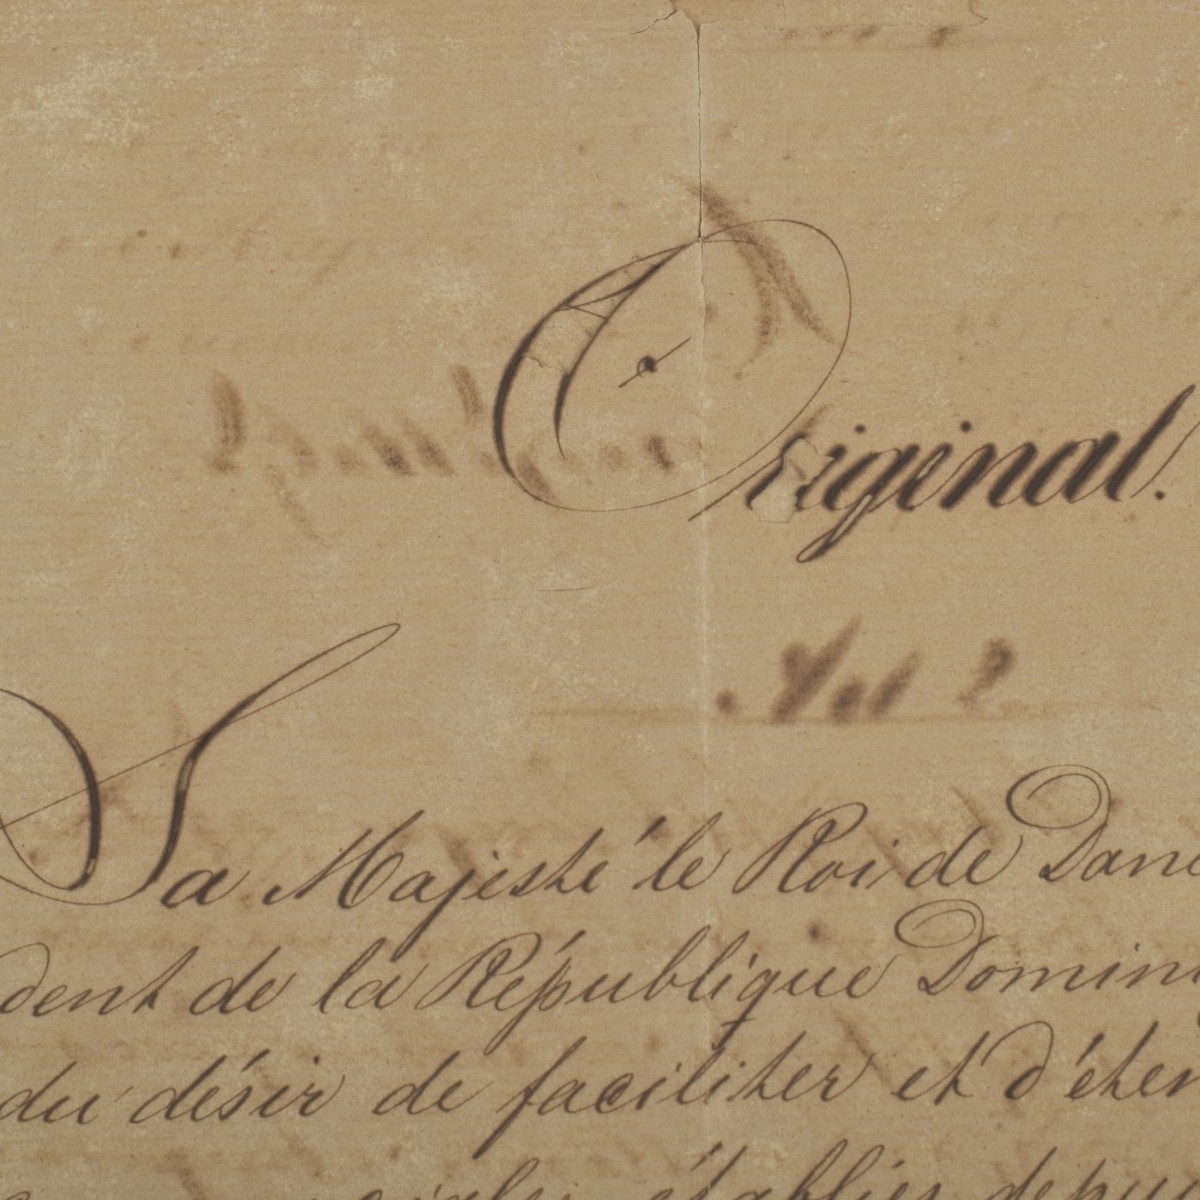 Original.
Sa Majesté le Roi de Dane
dent de la République Domini
du désir de faciliter et d'éten
établies depu